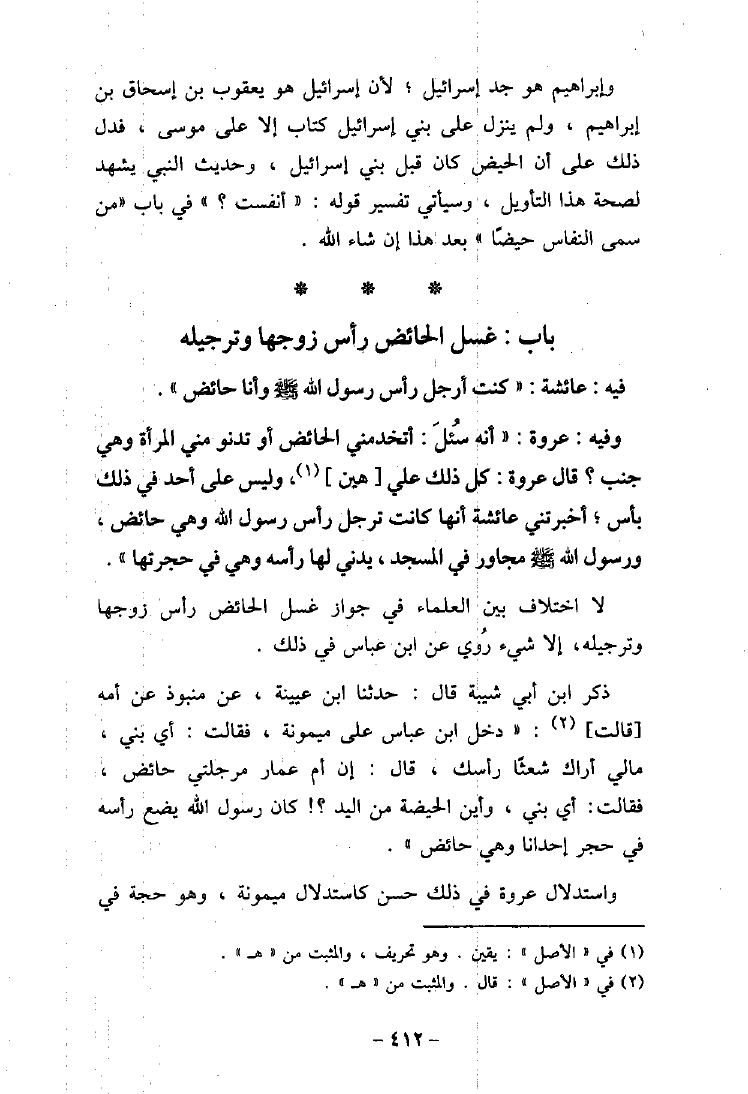 وإبراهيم هو جد إسرائيل ؛ لأن إسرائيل هو يعقوب بن إسحاق بن
إبراهيم ، ولم ينزل على بني إسرائيل كتاب إلا على موسى ، فدل
ذلك على أن الحيض كان قبل بني إسرائيل ، وحديث النبي يشهد
لصحة هذا التأويل ، وسيأتي تفسير قوله : « أنفست ؟ » في باب «من
سمى النفاس حيضًا » بعد هذا إن شاء الله .
* * *
باب : غسل الحائض رأس زوجها وترجيله
فيه : عائشة : « كنت أرجل رأس رسول الله ﷺ وأنا حائض » .
وفيه : عروة : « أنه سُئلَ : أتخدمني الحائض أو تدنو مني المرأة وهي
جنب ؟ قال عروة : كل ذلك علي [ هين ] (١)، وليس على أحد في ذلك
بأس ؛ أخبرتني عائشة أنها كانت ترجل رأس رسول الله وهي حائض ،
ورسول الله ﷺ مجاور في المسجد ، يدني لها رأسه وهي في حجرتها » .
لا اختلاف بين العلماء في جواز غسل الحائض رأس زوجها
وترجيله، إلا شيء رُوي عن ابن عباس في ذلك .
ذكر ابن أبي شيبة قال : حدثنا ابن عيينة ، عن منبوذ عن أمه
[قالت] (٢) : « دخل ابن عباس على ميمونة ، فقالت : أي بني ،
مالي أراك شعثًا رأسك ، قال : إن أم عمار مرجلتي حائض ،
فقالت: أي بني ، وأين الحيضة من اليد ؟! كان رسول الله يضع رأسه
في حجر إحدانا وهي حائض » .
واستدلال عروة في ذلك حسن كاستدلال ميمونة ، وهو حجة في
(١) في « الأصل » : يقين . وهو تحريف ، والمثبت من « هـ » .
(٢) في « الأصل » : قال . والمثبت من « هـ » .
- ٤١٢ -